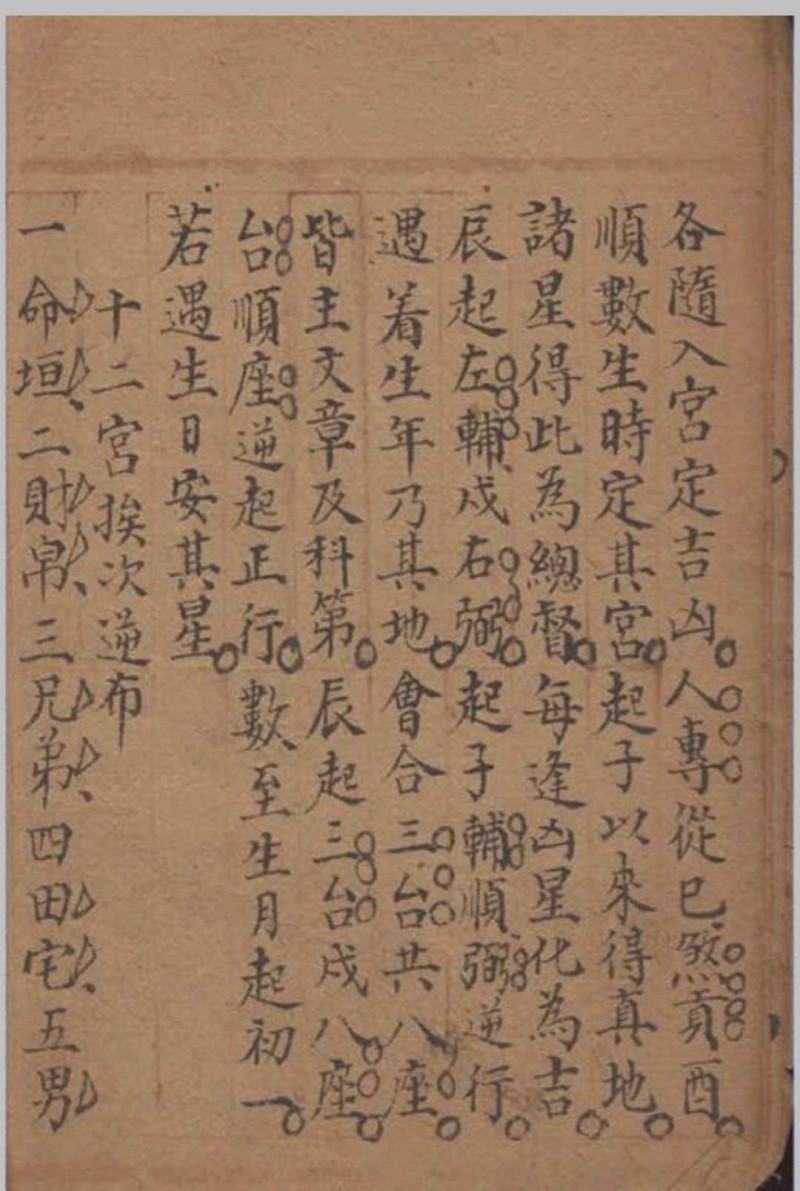 各隨入宮定吉凶人專從巳煞貢酉
順數生時定其宮起子以來得真地
諸星得此為總督每逢凶星化為吉
辰起左輔戍右弼起子輔順弼逆行
遇着生年乃其地會合三台共八座
皆主文章及科第辰起三台戍八座
台順座逆起正行數至生月起初一
若遇生日安其星
十二宮挨次逆布
一命垣二財帛三兄弟四田宅五男